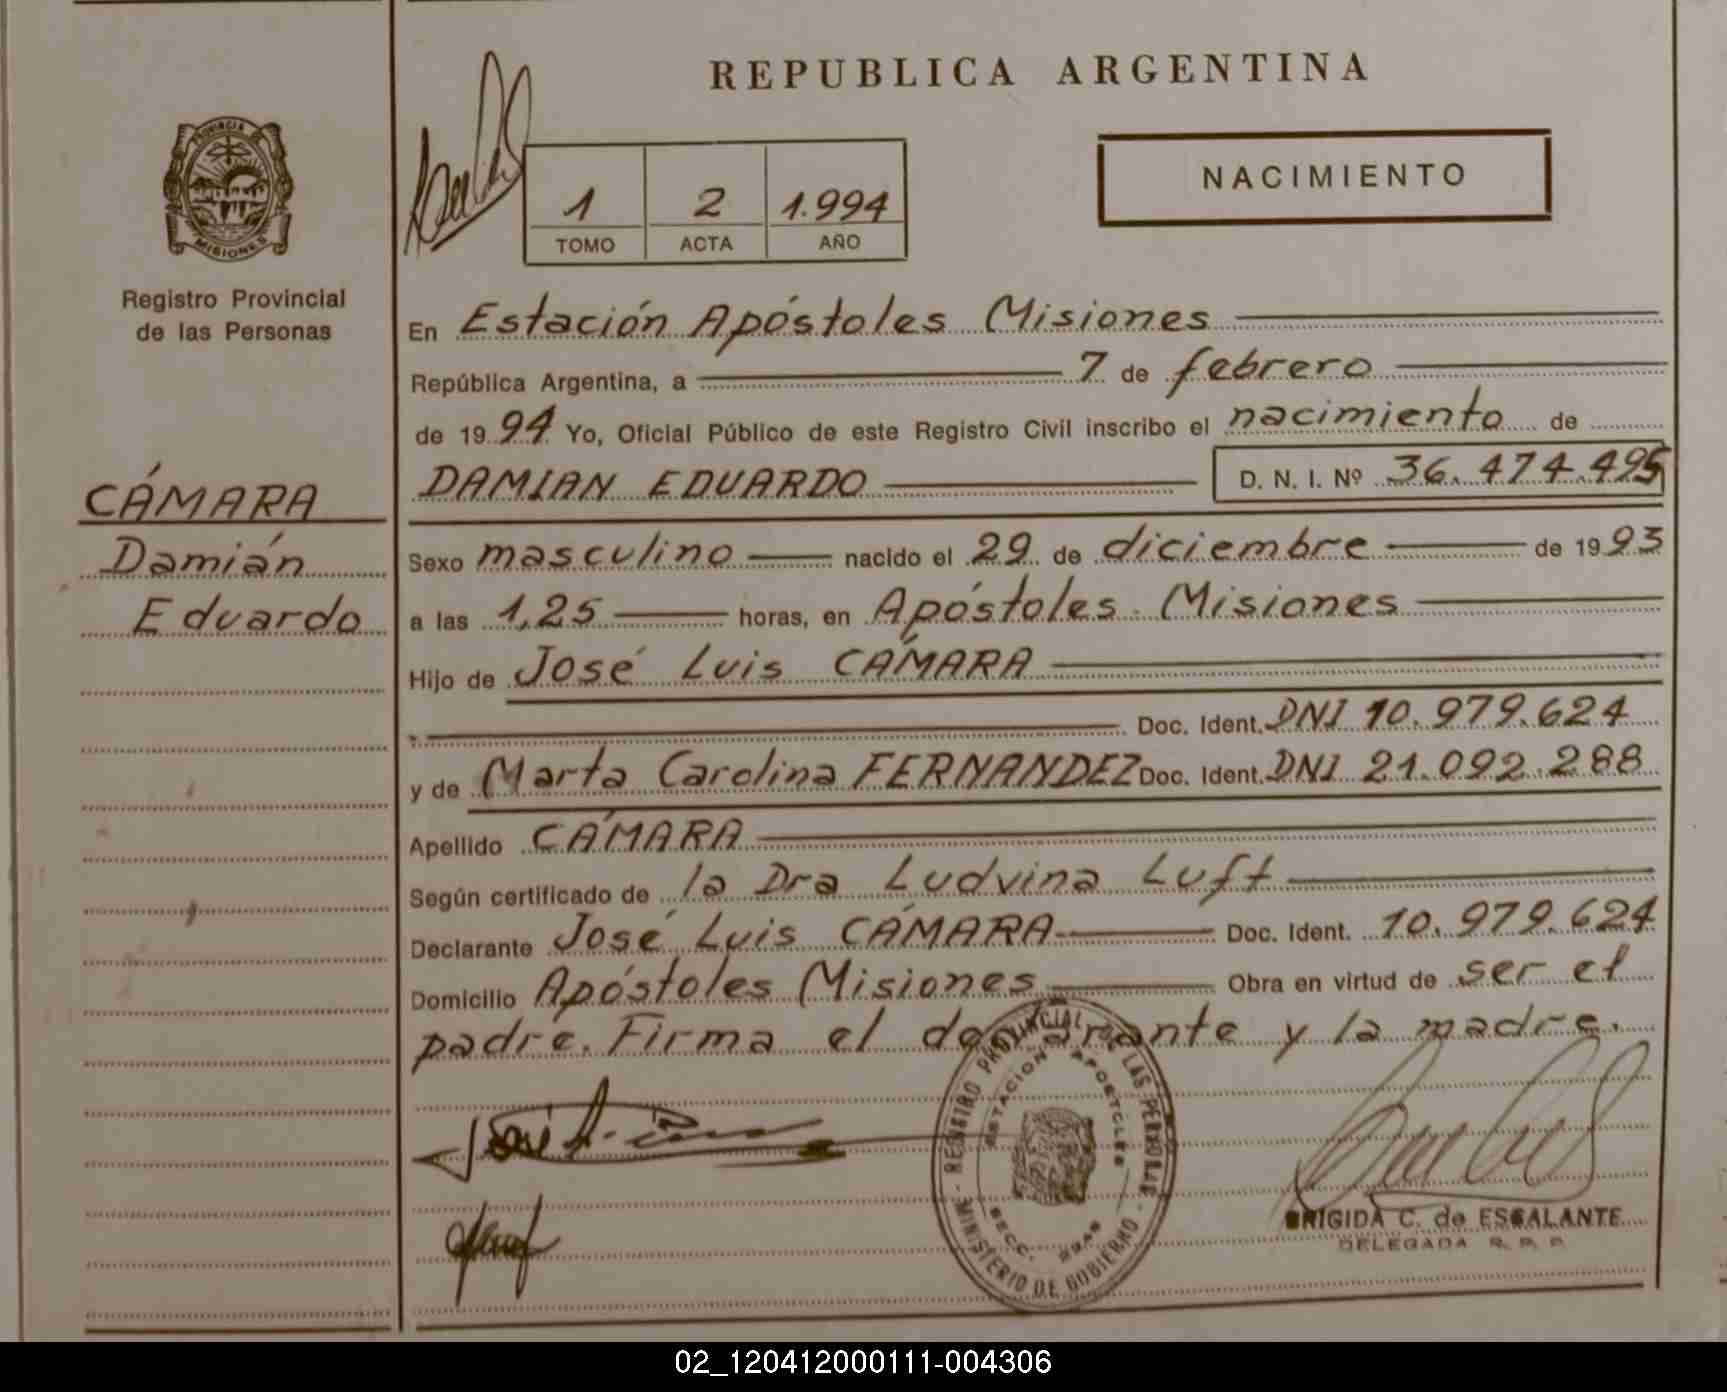 REPUBLICA ARGENTINA
PROVINCIA DE
MISIONES
Registro Provincial
de las Personas
1 2 1.994
TOMO ACTA AÑO
NACIMIENTO
CÁMARA
Damián
Eduardo
En Estación Apóstoles Misiones
República Argentina, a 7 de febrero
de 1994 Yo, Oficial Público de este Registro Civil inscribo el nacimiento de
DAMIAN EDUARDO D. N. I. Nº 36.474.495
Sexo masculino nacido el 29 de diciembre de 1993
a las 1,25 horas, en Apóstoles Misiones
Hijo de José Luis CÁMARA
Doc. Ident. DNI 10.979.624
y de Marta Carolina FERNANDEZ Doc. Ident. DNI 21.092.288
Apellido CÁMARA
Según certificado de la Dra Ludvina Luft
Declarante José Luis CÁMARA Doc. Ident. 10.979.624
Domicilio Apóstoles Misiones Obra en virtud de ser el
padre. Firma el declarante y la madre.
REGISTRO PROVINCIAL DE LAS PERSONAS
MINISTERIO DE GOBIERNO
ESTACION APOSTOLES
SECC.
BRIGIDA C. de ESCALANTE
DELEGADA R. P. P.
02_120412000111-004306